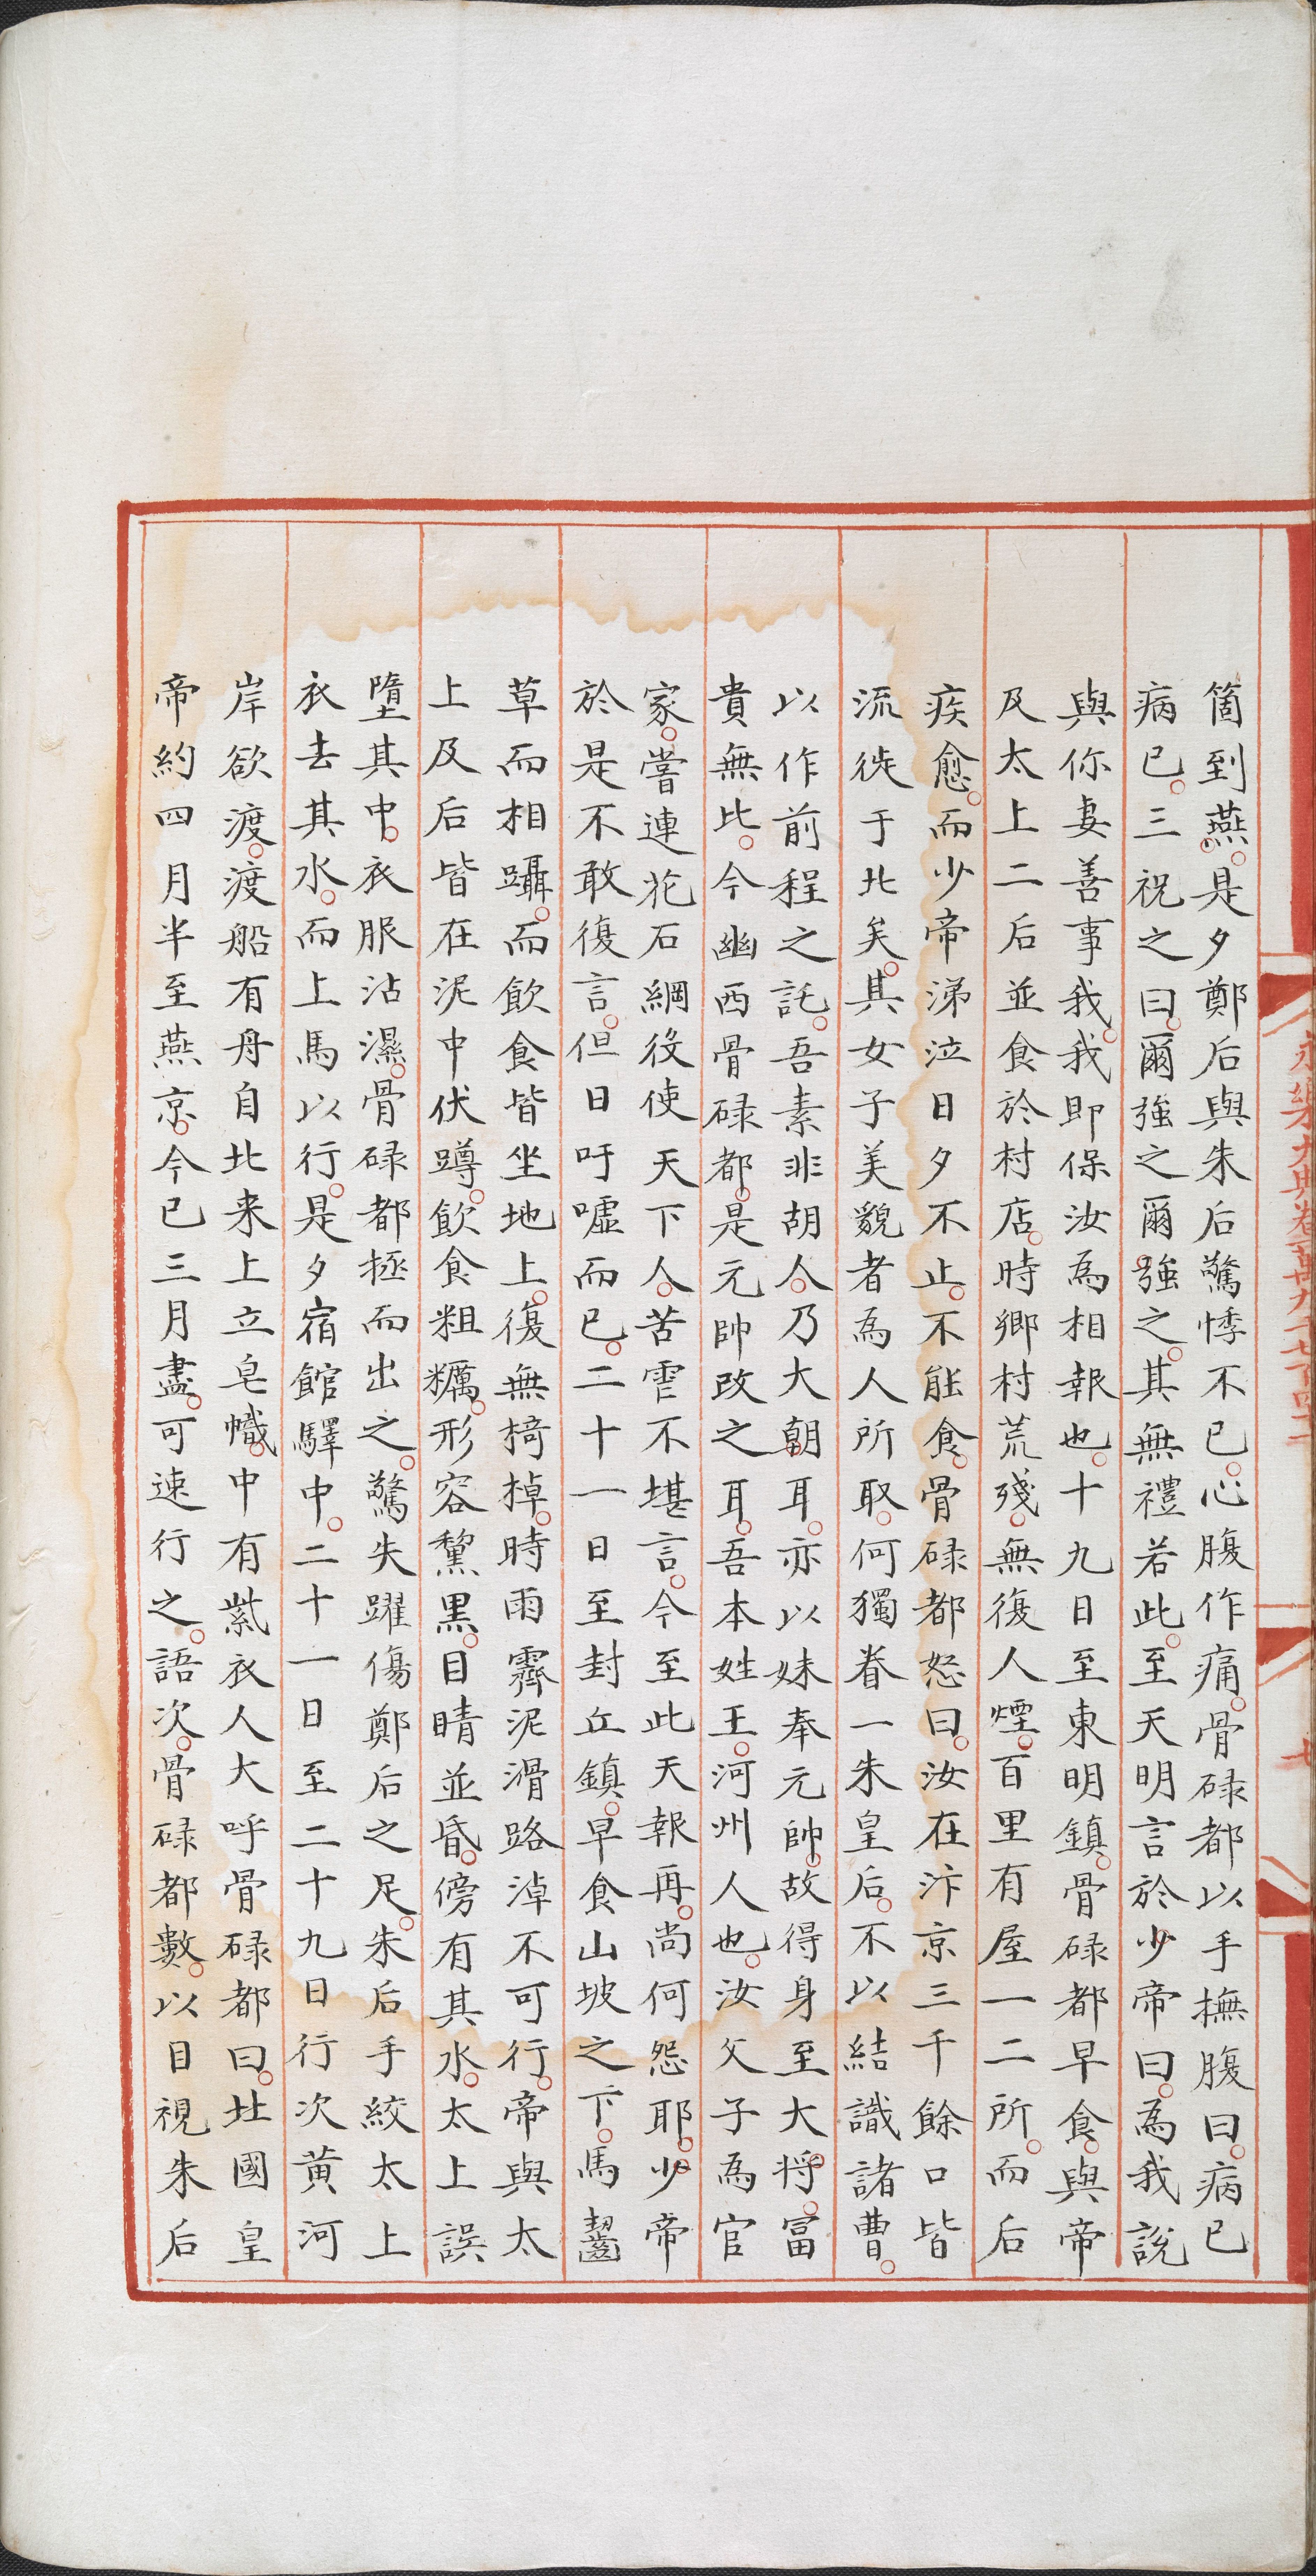 箇到燕是夕鄭后與朱后驚悸不已心腹作痛骨碌都以手撫腹曰病已
病已三祝之曰爾強之爾強之其無禮若此至天明言於少帝曰為我說
與你妻善事我我即保汝為相報也十九日至東明鎮骨碌都早食與帝
及太上二后並食於村店時鄉村荒殘無復人煙百里有屋一二所而后
疾愈而少帝涕泣日夕不止不能食骨碌都怒曰汝在汴京三千餘口皆
流徙于北矣其女子美貌者為人所取何獨眷一朱皇后不以結識諸曹
以作前程之託吾素非胡人乃大朝耳亦以妹奉元帥故得身至大將冨
貴無比今幽西骨碌都是元帥改之耳吾本姓王河州人也汝父子為官
家嘗連花石綱役使天下人苦零不堪言今至此天報再尚何怨耶少帝
於是不敢復言但日吁噓而已二十一日至封丘鎮早食山坡之下馬齧
草而相躡而飲食皆坐地上復無椅棹時雨霽泥滑路淖不可行帝與太
上及后皆在泥中伏蹲飲食粗糲形容黧黑目睛並昏傍有其水太上誤
墮其中衣服沾濕骨碌都拯而出之驚失躍傷鄭后之足朱后手絞太上
衣去其水而上馬以行是夕宿館驛中二十一日至二十九日行次黃河
岸欲渡渡船有舟自北来上立皂幟中有紫衣人大呼骨碌都曰北國皇
帝約四月半至燕京今已三月盡可速行之語次骨碌都數以目視朱后